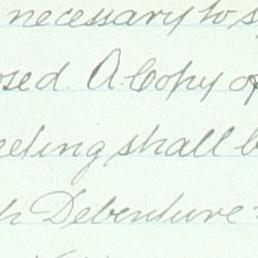 necessary to s
osed. A Copy of
eeting shall b
h Debenture